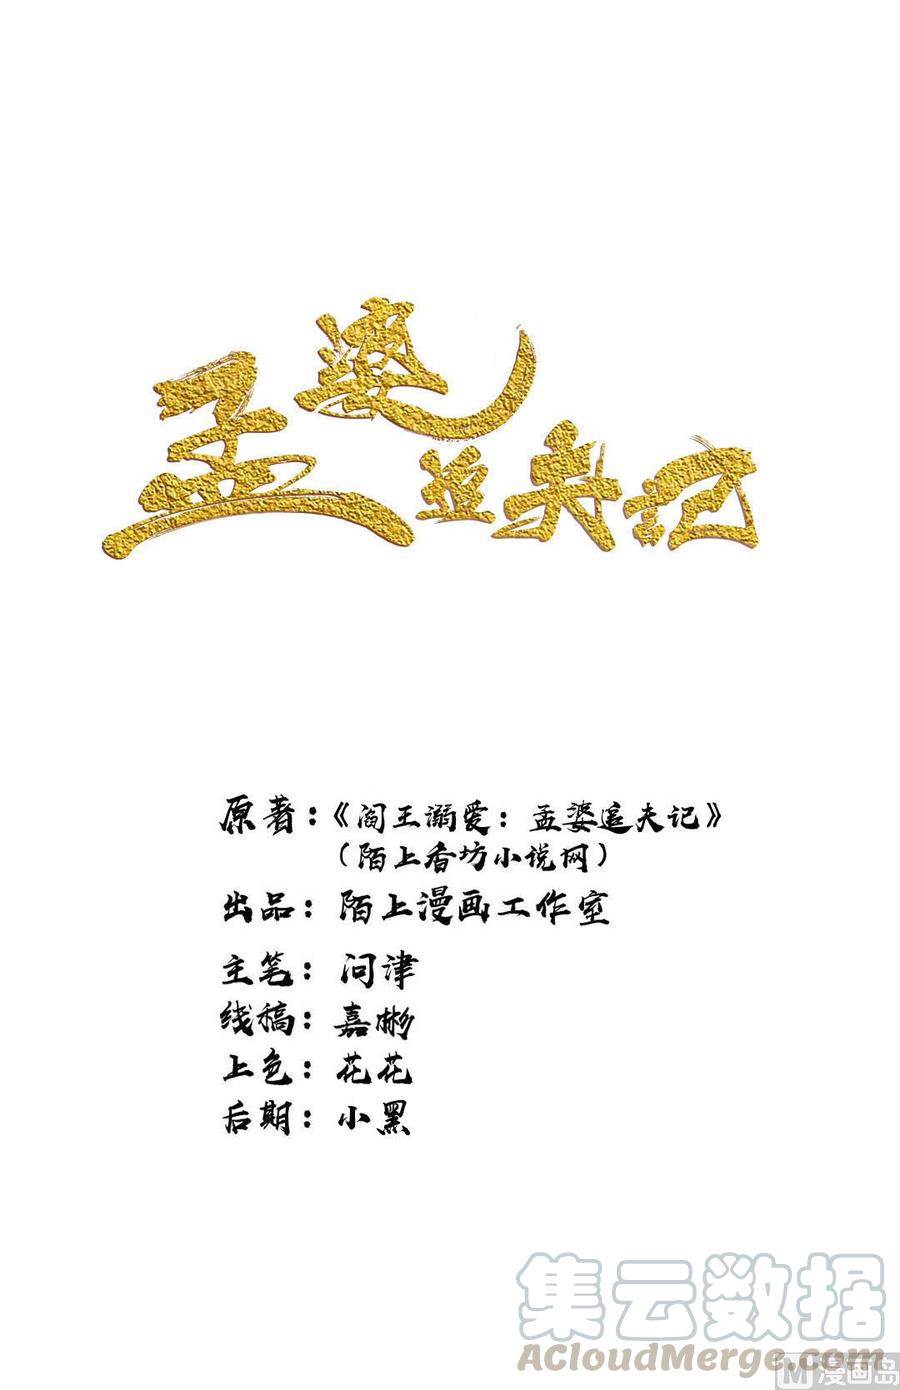 孟婆追夫记
原著：《阎王溺爱：孟婆追夫记》
（陌上香坊小说网）
出品：陌上漫画工作室
主笔：问津
线稿：嘉彬
上色：花花
后期：小黑
集云数据
ACloudMerge.com
M漫画岛